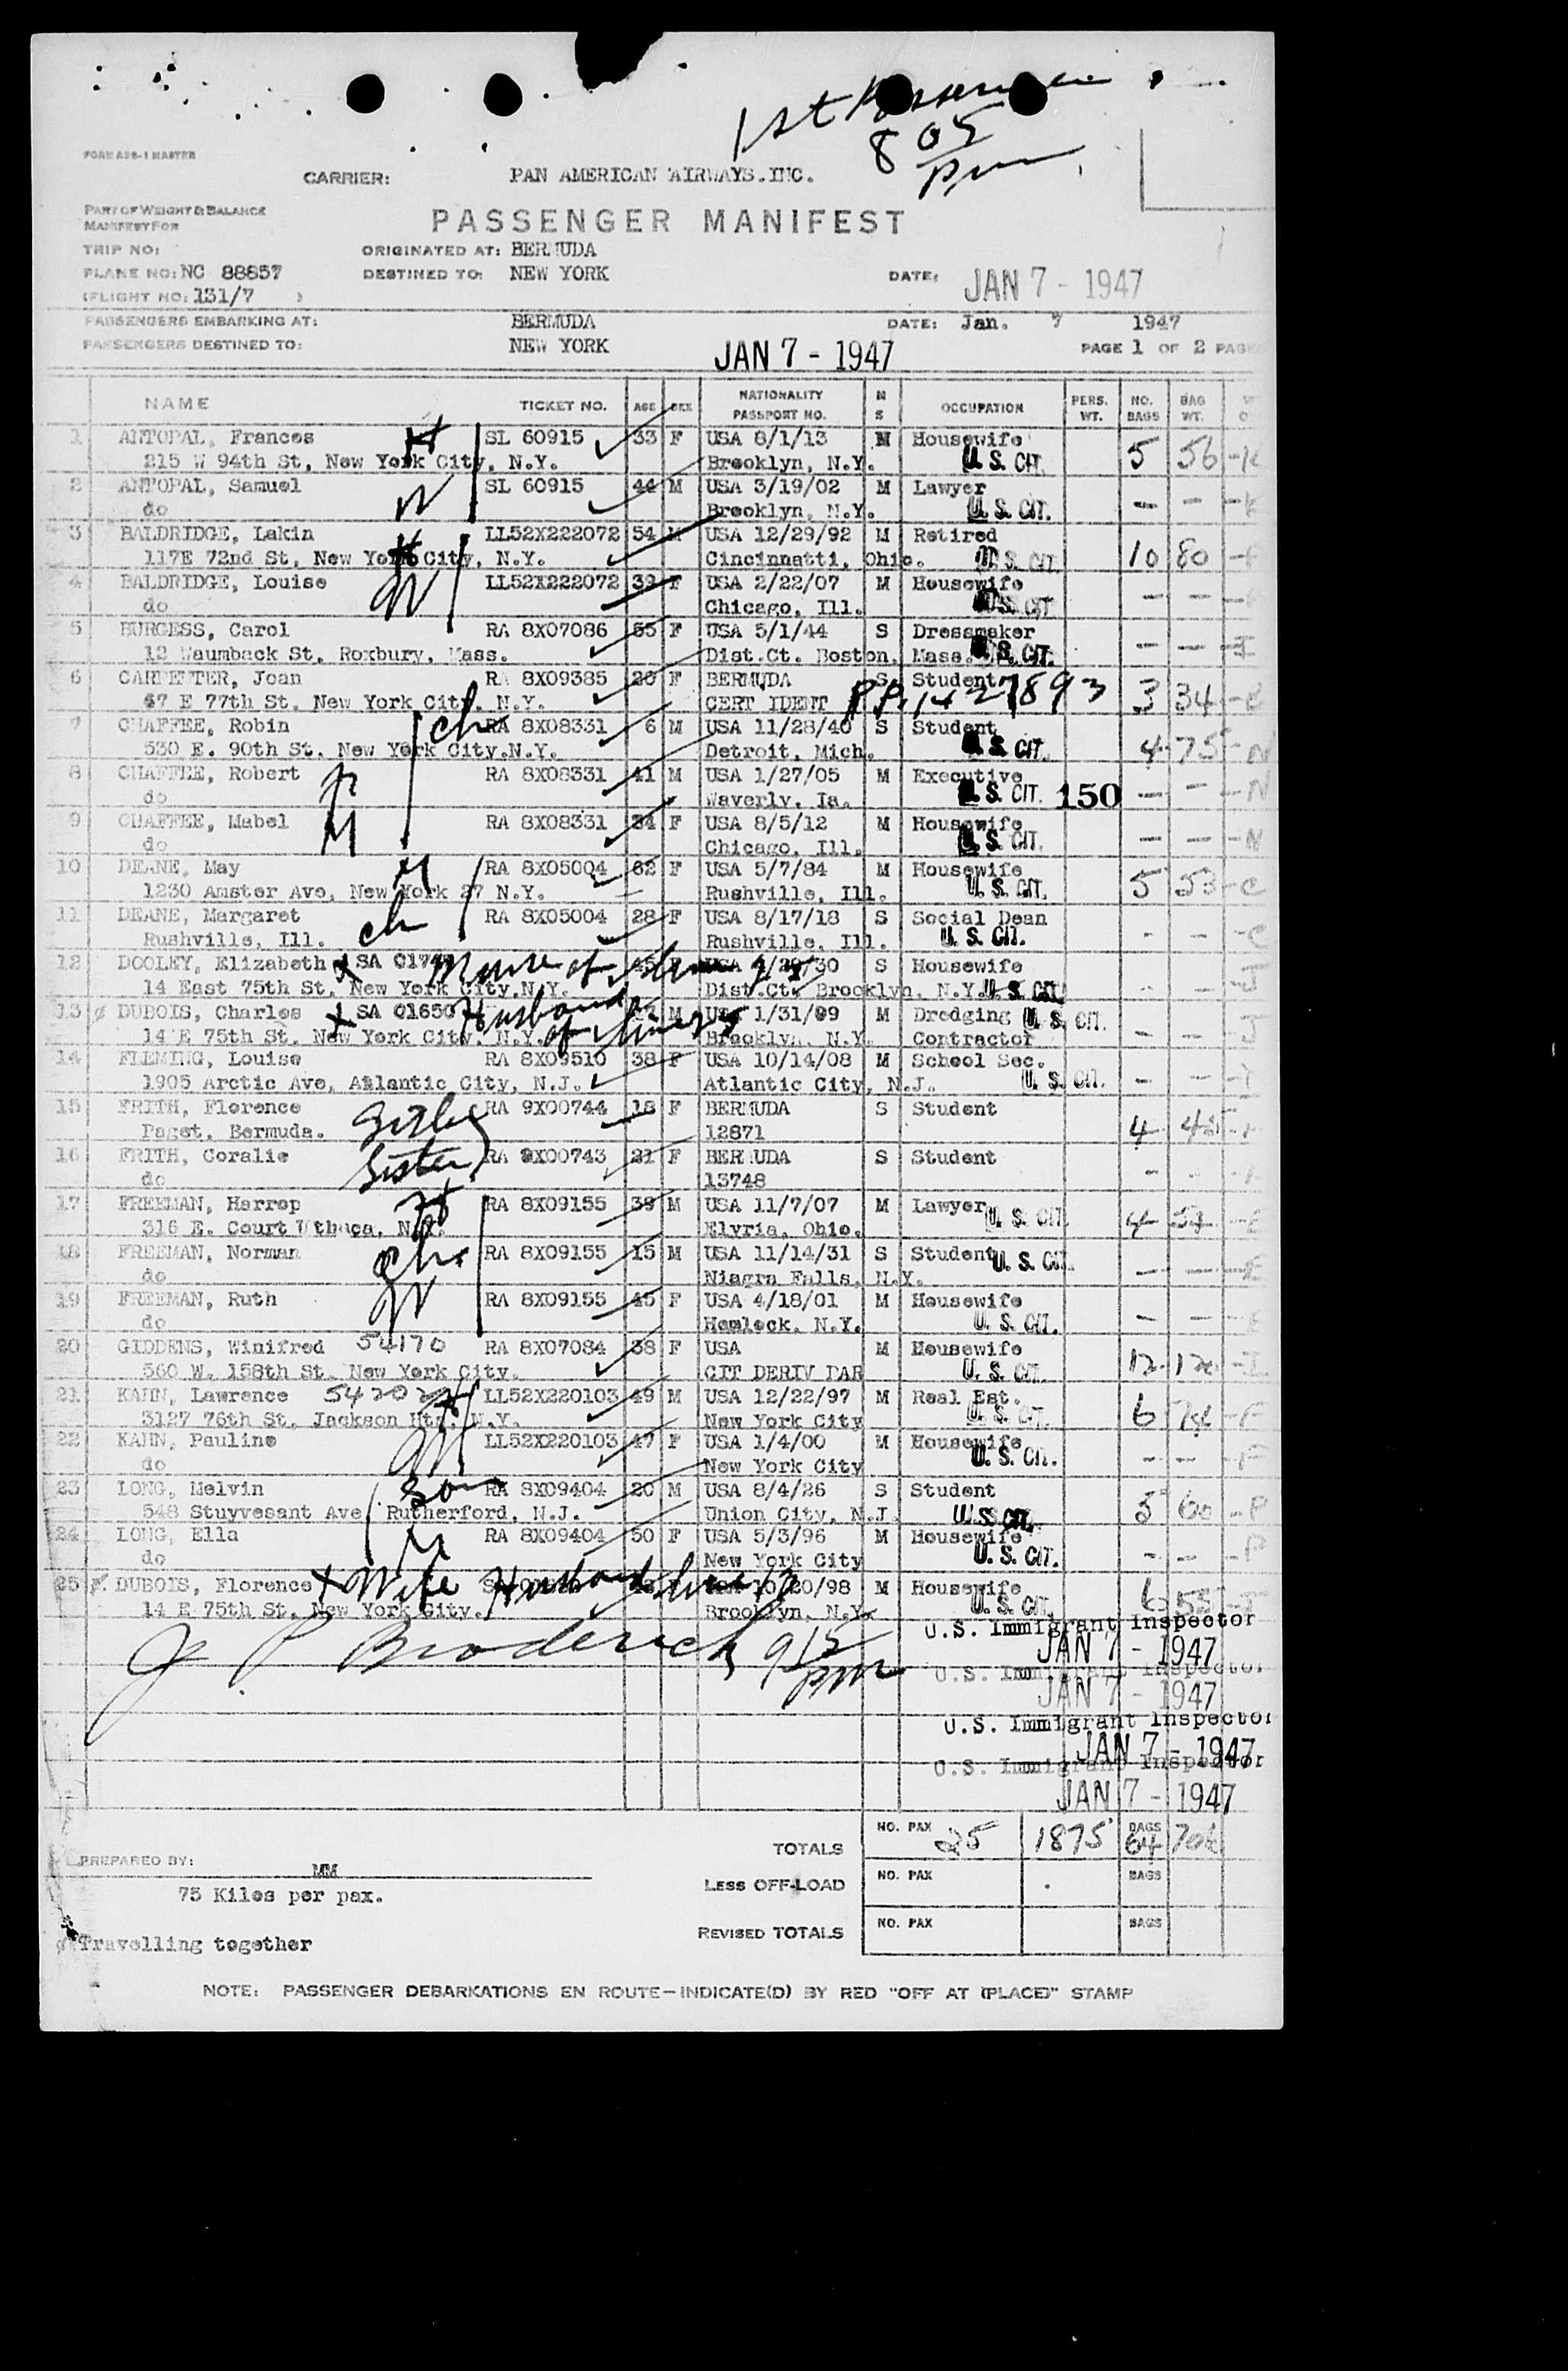 1st
8 05
pm
FORM ADS-1 MASTER
CARRIER: PAN AMERICAN AIRWAYS.INC.
PART OF WEIGHT & BALANCE
MANIFEST FOR
PASSENGER MANIFEST
TRIP NO: ORIGINATED AT: BERMUDA
PLANE NO: NC 88857 DESTINED TO: NEW YORK DATE: JAN 7 - 1947
(FLIGHT NO: 131/7 )
PASSENGERS EMBARKING AT: BERMUDA DATE: Jan. 7 1947
PASSENGERS DESTINED TO: NEW YORK JAN 7 - 1947 PAGE 1 OF 2 PAGE
NAME TICKET NO. AGE SEX NATIONALITY PASSPORT NO. M S OCCUPATION PERS. WT. NO. BAGS BAG WT.
1 ANTOPAL, Frances H SL 60915 33 F USA 8/1/13 M Housewife
215 W 94th St, New York City, N.Y. Brooklyn, N.Y. U. S. CIT. 5 56
2 ANTOPAL, Samuel W SL 60915 44 M USA 3/19/02 M Lawyer
do Brooklyn, N.Y. U. S. CIT. - -
3 BALDRIDGE, Lakin H LL52X222072 54 M USA 12/29/92 M Retired
117E 72nd St, New York City, N.Y. Cincinnatti, Ohio. U. S. CIT. 10 80
4 BALDRIDGE, Louise W LL52X222072 39 F USA 2/22/07 M Housewife
do Chicago, Ill. U. S. CIT. - -
5 BURGESS, Carol RA 8X07086 55 F USA 5/1/44 S Dressmaker
12 Waumback St, Roxbury, Mass. Dist.Ct. Boston, Mass. U. S. CIT. - - - I
6 CARPENTER, Joan RA 8X09385 20 F BERMUDA S Student
47 E 77th St, New York City, N.Y. CERT IDENT 3 34
7 CHAFFEE, Robin ch RA 8X08331 6 M USA 11/28/40 S Student
530 E. 90th St. New York City.N.Y. Detroit, Mich. U. S. CIT. 4 75 - N
8 CHAFFEE, Robert RA 8X08331 41 M USA 1/27/05 M Executive
do Waverly, Ia. U. S. CIT. 150 - - - N
9 CHAFFEE, Mabel M RA 8X08331 34 F USA 8/5/12 M Housewife
do Chicago, Ill. U. S. CIT. - - - N
10 DEANE, May M RA 8X05004 62 F USA 5/7/84 M Housewife
1230 Amster Ave, New York 27 N.Y. Rushville, Ill. U. S. CIT. 5 53 - C
11 DEANE, Margaret ch RA 8X05004 28 F USA 8/17/18 S Social Dean
Rushville, Ill. Rushville, Ill. U. S. CIT. - - - C
12 DOOLEY, Elizabeth x SA S Housewife
14 East 75th St, New York City,N.Y. Dist.Ct. Brooklyn, N.Y. U. S. CIT. - - - J
13 ø DUBOIS, Charles x SA 01650 Husband of M USA 1/31/99 M Dredging U. S. CIT.
14 E 75th St. New York City. N.Y. Brooklyn. N.Y. Contractor - - - J
14 FLEMING, Louise RA 8X09510 38 F USA 10/14/08 M School Sec.
1905 Arctic Ave, Atlantic City, N.J. Atlantic City, N.J. U. S. CIT. - -
15 FRITH, Florence RA 9X00744 18 F BERMUDA S Student
Paget, Bermuda. 12871 4
16 FRITH, Coralie Sister RA 9X00743 21 F BERMUDA S Student
do 13748 - -
17 FREEMAN, Harrop H RA 8X09155 39 M USA 11/7/07 M Lawyer U. S. CIT.
316 E. Court Ithaca, N.Y. Elyria, Ohio. 4
18 FREEMAN, Norman ch. RA 8X09155 15 M USA 11/14/31 S Student U. S. CIT.
do Niagra Falls, N.Y. - - - E
19 FREEMAN, Ruth W RA 8X09155 45 F USA 4/18/01 M Housewife
do Hemlock, N.Y. U. S. CIT. - - - E
20 GIDDENS, Winifred 54170 RA 8X07084 38 F USA M Housewife
560 W. 158th St. New York City. CIT DERIV PAR U. S. CIT. 12 120 - I
21 KAHN, Lawrence H LL52X220103 49 M USA 12/22/97 M Real Est.
3127 76th St. Jackson Hts. N.Y. New York City U. S. CIT. 6 74 - F
22 KAHN, Pauline W LL52X220103 47 F USA 1/4/00 M Housewife
do New York City U. S. CIT. - - - F
23 LONG, Melvin Son RA 8X09404 20 M USA 8/4/26 S Student
548 Stuyvesant Ave. Rutherford, N.J. Union City, N.J. U. S. CIT. 5 60 - P
24 LONG, Ella M RA 8X09404 50 F USA 5/3/96 M Housewife
do New York City U. S. CIT. - - - P
25 ø DUBOIS, Florence x Wife Husband line 13 10/20/98 M Housewife
14 E 75th St. New York City. Brooklyn, N.Y. U. S. CIT. 6 55
J P Broderick 915 pm
U.S. Immigrant Inspector
JAN 7 - 1947
U.S. Immigrant Inspector
JAN 7 - 1947
U.S. Immigrant Inspector
JAN 7 - 1947
U.S. Immigrant Inspector
JAN 7 - 1947
TOTALS NO. PAX 25 1875 BAGS 64
PREPARED BY: MM
LESS OFF-LOAD NO. PAX BAGS
75 Kilos per pax.
REVISED TOTALS NO. PAX BAGS
ø Travelling together
NOTE: PASSENGER DEBARKATIONS EN ROUTE-INDICATE(D) BY RED "OFF AT (PLACE)" STAMP